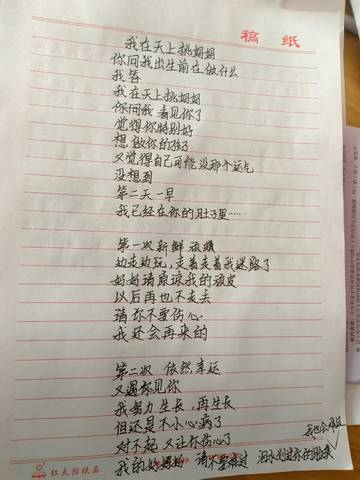 稿 纸
我在天上挑妈妈
你问我出生前在做什么
我答
我在天上挑妈妈
你问我 看见你了
觉得你特别好
想做你的孩子
又觉得自己可能没那个运气
没想到
第二天一早
我已经在你的肚子里……
第一次新鲜 顽
边走边玩，走着走着我迷路了
妈妈请原谅我的顽皮
以后再也不走去
请你不要伤心
我还会再来的
第二次 依然幸运
又遇你见你
我努力生长，再生长
但还是不小心病了
对不起 又让你伤心了
我的好妈妈 请不要难过 泪水划过你的脸
我也会
红太阳纸品